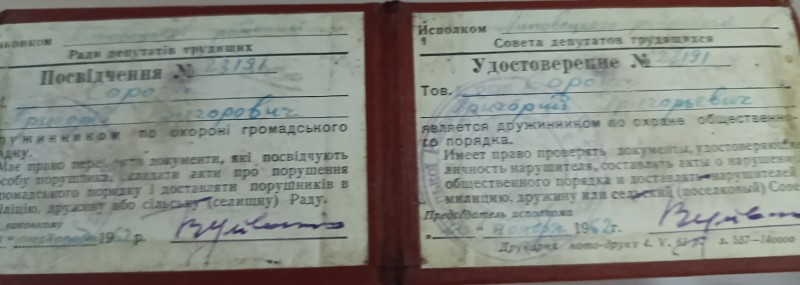 конком
Ради депутатів трудящих
Посвідчення № 23191
Соро
Григорій Григорович
ружинником по охороні громадського
дку.
Має право перевіряти документи, які посвідчують
особу порушника, складати акти про порушення
громадського порядку і доставляти порушників в
міліцію, дружину або сільську (селищну) Раду.
виконкому
листопада 1962 р.
Исполком
Совета депутатов трудящихся
Удостоверение № 23191
Тов. Соро
Григорий Григорьевич
является дружинником по охране общественно-
го порядка.
Имеет право проверять документы, удостоверяю
личность нарушителя, составлять акты о нарушени
общественного порядка и доставлять нарушителей
милицию, дружину или сельский (поселковый) Сове
Председатель исполкома
ноября 1962 г.
Друкарня ното-друку 4. V. з. 557—140000